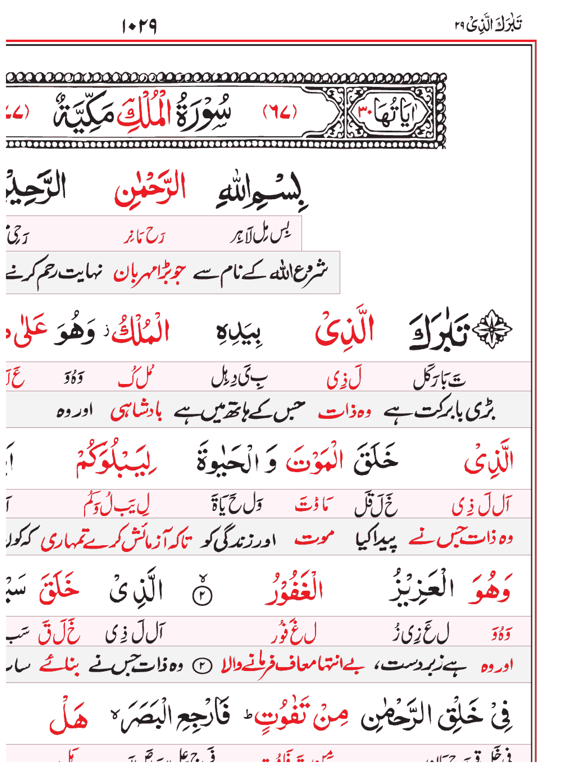 تَبٰرَكَ الَّذِیْ ۲۹ ۱۰۲۹
اٰیَاتُهَا ۳۰ (۶۷) سُوْرَةُ الْمُلْكِ مَكِّیَّةٌ
بِسْمِ اللّٰهِ الرَّحْمٰنِ
بِس مِل لَاہِر رَح مَانِر
شروع اللہ کے نام سے جو بڑا مہربان نہایت رحم کرنے
تَبٰرَكَ الَّذِیْ بِیَدِهِ الْمُلْكُ ؗ وَهُوَ عَلٰی
تَ بَارَكَل لَ ذِی بِ یَ دِہِل مُل كُ وَ هُ وَ
بڑی بابرکت ہے وہ ذات جس کے ہاتھ میں ہے بادشاہی اور وہ
الَّذِیْ خَلَقَ الْمَوْتَ وَ الْحَیٰوةَ لِیَبْلُوَكُمْ
اَل لَ ذِی خَ لَ قَل مَاؤتَ وَل حَ یَاةَ لِ یَب لُ وَ كُم
وہ ذات جس نے پیدا کیا موت اور زندگی کو تاکہ آزمائش کرے تمہاری کہ کون
وَهُوَ الْعَزِیْزُ الْغَفُوْرُ ۲ الَّذِیْ خَلَقَ
وَ هُ وَ ل عَ زِی زُ ل غَ فُورُ اَل لَ ذِی خَ لَ قَ
اور وہ ہے زبردست، بے انتہا معاف فرمانے والا ۲ وہ ذات جس نے بنائے
فِیْ خَلْقِ الرَّحْمٰنِ مِنْ تَفٰوُتٍ ؕ فَارْجِعِ الْبَصَرَ ۙ هَلْ